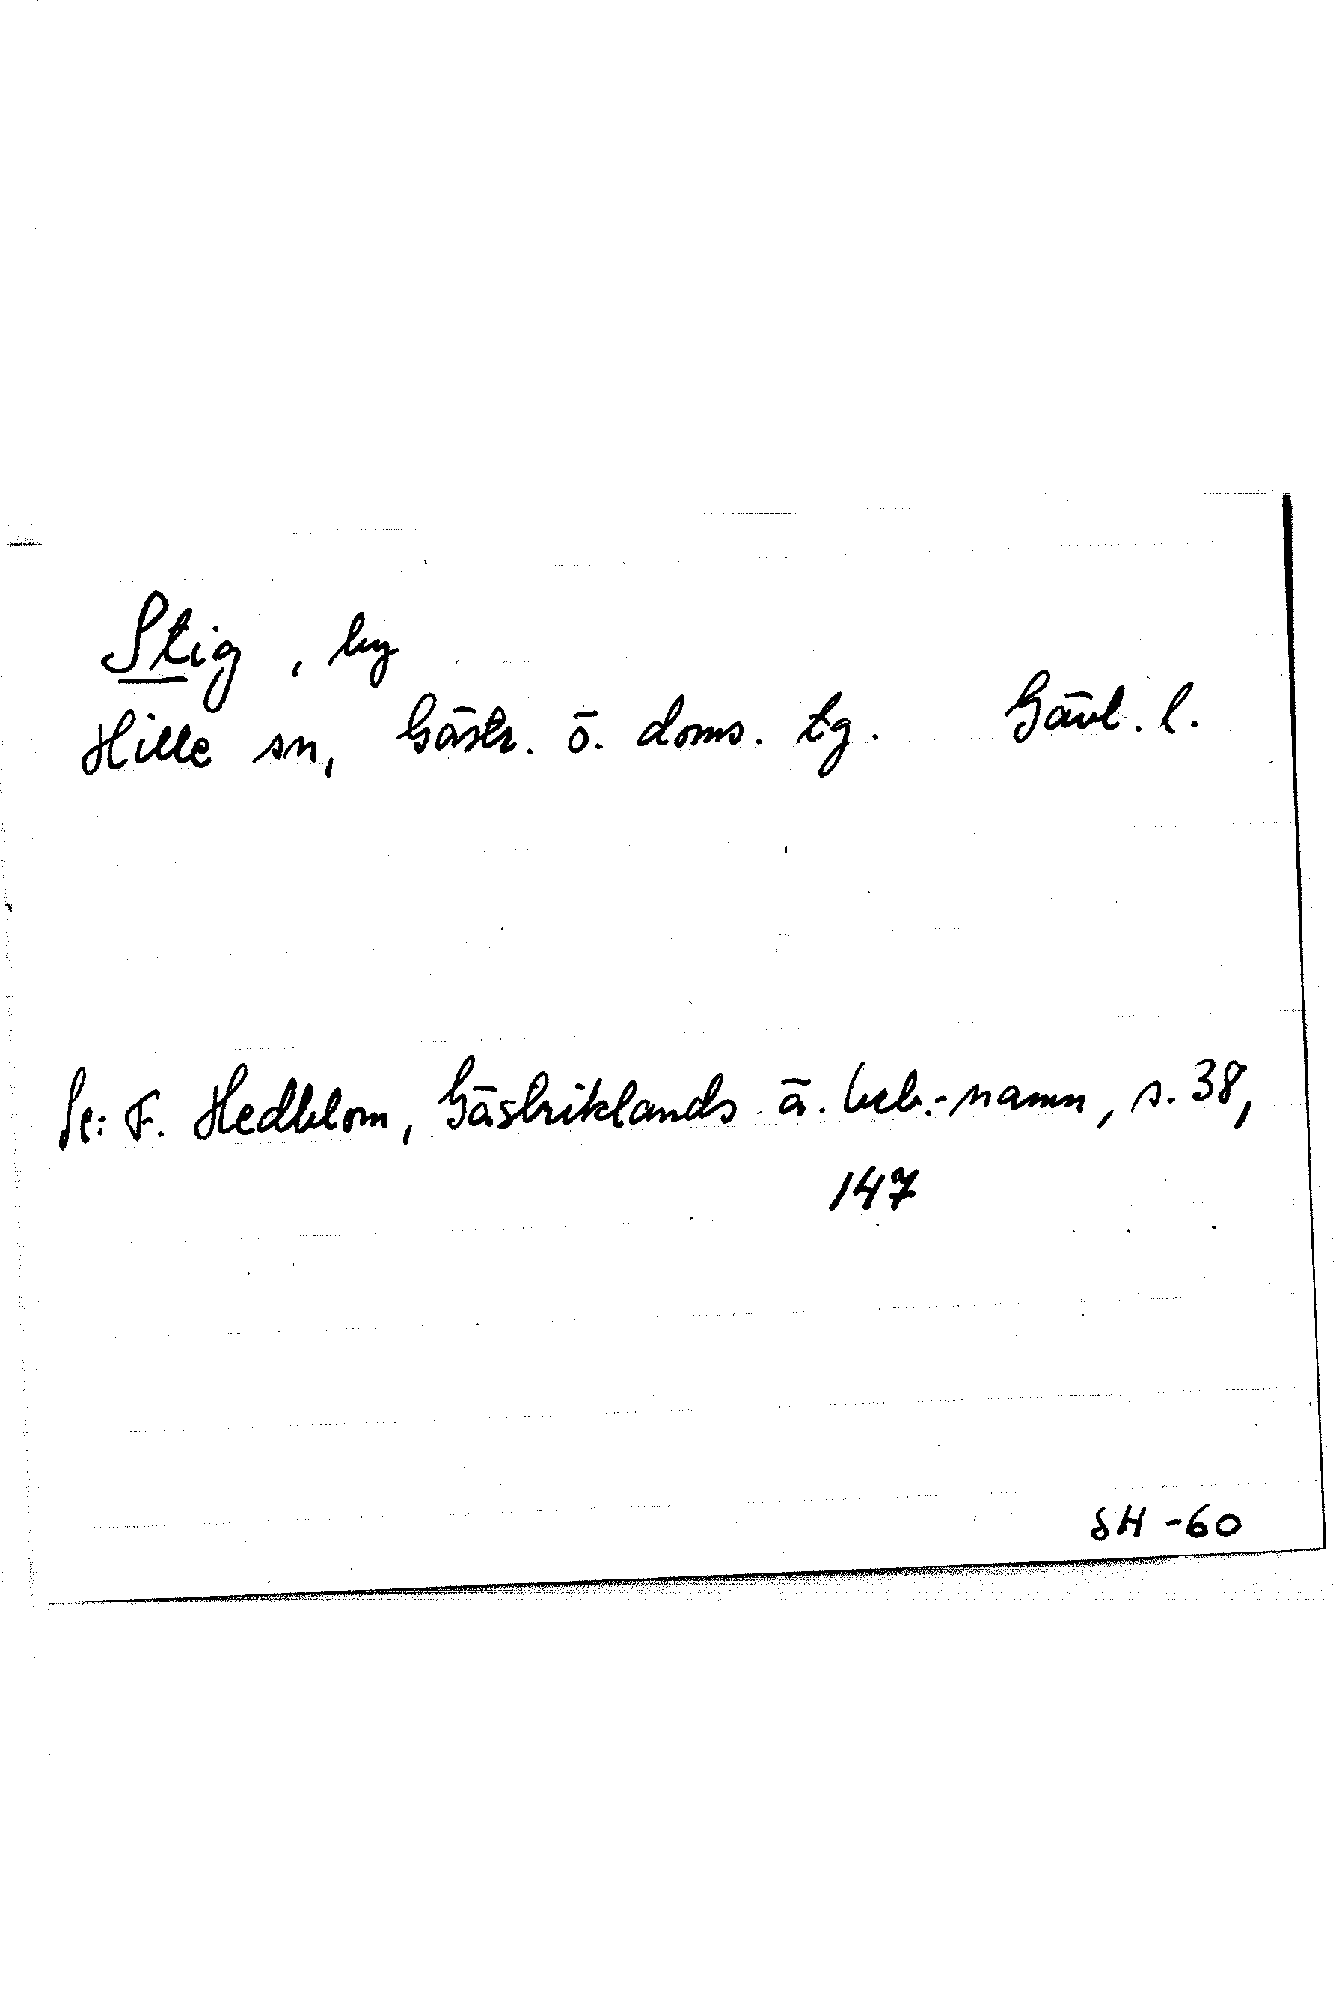 Stig, by
Hille sn, Gästr. ö. doms. tg. Gävl. l.
Se: F. Hedblom, Gästriklands ä. beb.-namn, s. 38,
147
SH -60